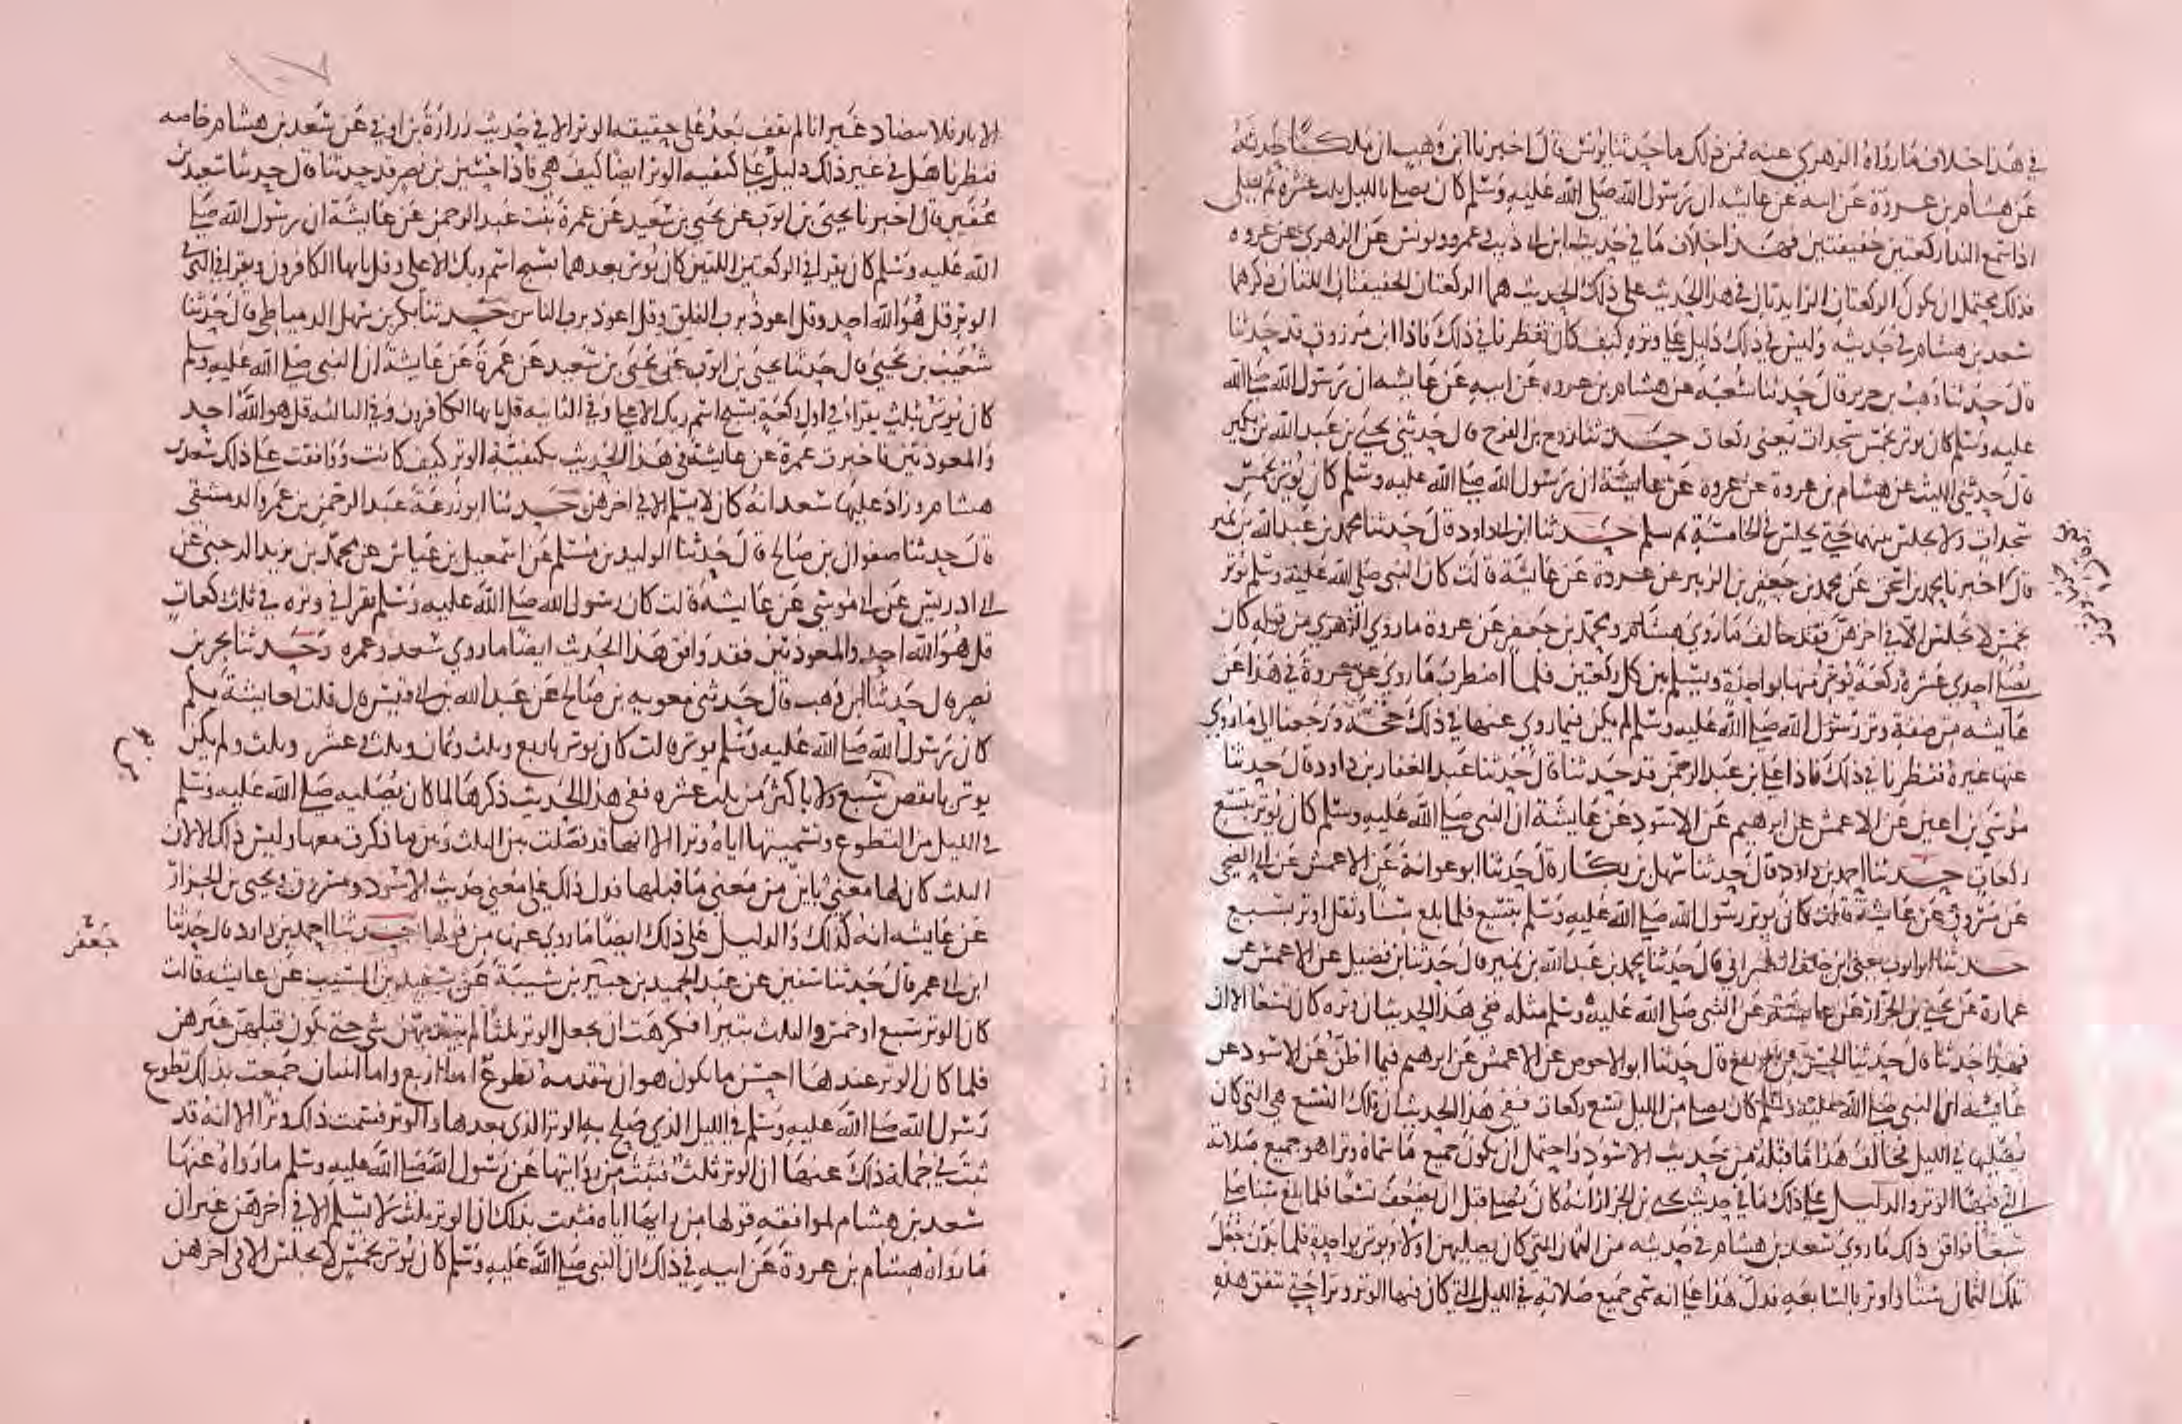 في هذا خلاف ما رواه الزهري عنه فمن ذلك ما حدثنا يونس قال اخبرنا ابن وهب ان ملكا حدثه
عن هشام بن عروة عن ابيه عن عايشه ان رسول الله صلى الله عليه وسلم كان يصلي بالليل ثلث عشرة ثم يصلي
اذا سمع الندا ركعتين خفيفتين فهذا خلاف ما في حديث ابن ابي ذيب وعمرو ويونس عن الزهري عن عروه
فذلك يحتمل ان يكون الركعتان الزايدتان في هذا الحديث على ذلك الحديث هما الركعتان الخفيفتان اللتان ذكرهما
سعد بن هشام في حديثه وليس في ذلك دليل على وتره كيف كان فنظرنا في ذلك فاذا ابن مرزوق قد حدثنا
قال حدثنا وهب بن جرير قال حدثنا شعبة عن هشام بن عروه عن ابيه عن عايشه ان رسول الله صلى الله
عليه وسلم كان يوتر بخمس سجدات يعني ركعات حدثنا روح بن الفرج قال حدثني يحيى بن عبد الله بن بكير
قال حدثني الليث عن هشام بن عروة عن عروه عن عايشة ان رسول الله صلى الله عليه وسلم كان يوتر بخمس
سجدات ولا يجلس بينهما حتى يجلس في الخامسة ثم يسلم حدثنا ابن ابي داود قال حدثنا محمد بن عبد الله بن نمير
قال اخبرنا محمد بن اسحق عن محمد بن جعفر بن الزبير عن عروة عن عايشة قالت كان النبي صلى الله عليه وسلم يوتر
بخمس لا يجلس الا في اخرهن فقد خالف ما روى هشام ومحمد بن جعفر عن عروة ما روى الزهري من قوله كان
يصلي احدى عشرة ركعة يوتر منها بواحدة ويسلم من كل ركعتين فلما اضطرب ما روي عن عروة في هذا عن
عايشه من صفة وتر رسول الله صلى الله عليه وسلم لم يكن فيما روي عنها في ذلك حجة ورجعنا الى ما روي
عنها غيره فنظرنا في ذلك فاذا علي بن عبد الرحمن قد حدثنا قال حدثنا عبد الغفار بن داود قال حدثنا
موسى بن اعين عن الاعمش عن ابرهيم عن الاسود عن عايشة ان النبي صلى الله عليه وسلم كان يوتر بتسع
ركعات حدثنا احمد بن داود قال حدثنا سهل بن بكار قال حدثنا ابو عوانة عن الاعمش عن ابي الضحى
عن مسروق عن عايشة قالت كان يوتر رسول الله صلى الله عليه وسلم بتسع فلما بلغ سنا وثقل اوتر بسبع
حدثنا ابو ايوب يعني ابن خلف الطبراني قال حدثنا محمد بن عبد الله بن نمير قال حدثنا بن فضيل عن الاعمش عن
عمارة عن يحيى بن الجزار عن عايشة عن النبي صلى الله عليه وسلم مثله ففي هذا الحديث ان وتره كان تسعا الا ان
فهدا حدثنا قال حدثنا الحسن بن الربيع قال حدثنا ابو الاحوص عن الاعمش عن ابرهيم فيما اظن عن الاسود عن
عايشه ان النبي صلى الله عليه وسلم كان يصلي من الليل تسع ركعات ففي هذا الحديث ان تلك التسع هي التي كان
يصليها في الليل فخالف هذا ما قبله من حديث الاسود واحتمل ان يكون جميع ما سماه وترا هو جميع صلاته
التي فيها الوتر والدليل على ذلك ما في حديث يحيى بن الجزار انه كان يصلي قبل ان يضعف تسعا فلما بلغ سنا صلى
سبعا فوافق ذلك ما روى سعد بن هشام في حديثه من الثمان التي كان يصليهن اولا ويوتر بواحدة فلما بدن جعل
تلك الثمان ستا واوتر بالسابعه فدل هذا على انه سمى جميع صلاته في الليل التي كان فيها الوتر وترا حتى تتفق هذه
الاثار فلا تتضاد غير انا لم نقف بعد على حقيقه الوتر الا في حديث زرارة بن اوفى عن سعد بن هشام خاصه
فنظرنا هل في غير ذلك دليل على كيفيه الوتر ايضا كيف هي فاذا حسين بن نصر قد حدثنا قال حدثنا سعيد بن
عفير قال اخبرنا يحيى بن ايوب عن يحيى بن سعيد عن عمرة بنت عبد الرحمن عن عايشة ان رسول الله صلى
الله عليه وسلم كان يقرا في الركعتين اللتين كان يوتر بعدهما بسبح اسم ربك الاعلى وقل يايها الكافرون ويقرا في التي في
الوتر قل هو الله احد وقل اعوذ برب الفلق وقل اعوذ برب الناس حدثنا بكر بن سهل الدمياطي قال حدثنا
شعيب بن يحيى قال حدثنا يحيى بن ايوب عن يحيى بن سعيد عن عمرة عن عايشة ان النبي صلى الله عليه وسلم
كان يوتر بثلث يقرا في اول ركعة بسبح اسم ربك الاعلى وفي الثانيه قل يايها الكافرون وفي الثالثه قل هو الله احد
والمعوذتين فاخبرت عمرة عن عايشة في هذا الحديث بكيفية الوتر كيف كانت ووافقت على ذلك سعد بن
هشام وزاد عليها سعد انه كان لا يسلم الا في اخرهن حدثنا ابو زرعة عبد الرحمن بن عمرو الدمشقي
قال حدثنا صفوان بن صالح قال حدثنا الوليد بن مسلم عن اسمعيل بن عياش عن محمد بن يزيد الرحبي عن
ابي ادريس عن ابي موسى عن عايشه قالت كان رسول الله صلى الله عليه وسلم يقرا في وتره في ثلث ركعات
قل هو الله احد والمعوذتين فقد وافق هذا الحديث ايضا ما روى سعد وعمره وحدثنا بحر بن
نصر قال حدثنا ابن وهب قال حدثني معويه بن صالح عن عبد الله بن ابي قيس قال قلت لعايشة بكم
كان رسول الله صلى الله عليه وسلم يوتر قالت كان يوتر باربع وثلث وثمان وثلث وعشر وثلث ولم يكن
يوتر بانقص من سبع ولا باكثر من ثلث عشره ففي هذا الحديث ذكرها لما كان يصليه صلى الله عليه وسلم
في الليل من التطوع وتسميتها اياه وترا الا انها قد فصلت بين الثلث وبين ما ذكرت معها وليس ذلك الا لان
الثلث كان لها معنى باين من معنى ما قبلها فدل ذلك على معنى حديث الاسود ومسروق ويحيى بن الجزار
عن عايشه انه كذلك والدليل على ذلك ايضا ما روي عنها من قولها حدثنا احمد بن داود قال حدثنا
ابن ابي عمر قال حدثنا سفين عن عبد الحميد بن جبير بن شيبة عن سعيد بن المسيب عن عايشه قالت
كان الوتر سبع او خمس والثلث بتيرا فكرهت ان يجعل الوتر ثلثا لم يتقدمهن شي حتى يكون قبلهن غيرهن
فلما كان الوتر عندها احسن ما يكون هو ان يتقدمه تطوع اما اربع واما اثنتان جمعت بذلك تطوع
رسول الله صلى الله عليه وسلم في الليل الذي صلح به الوتر الذي بعدها والوتر فسمت ذلك وترا الا انه قد
ثبت في جملة ذلك عنها ان الوتر ثلث فثبت من روايتها عن رسول الله صلى الله عليه وسلم ما رواه عنها
سعد بن هشام لموافقه قولها من رايها اياه فثبت بذلك ان الوتر ثلث لا يسلم الا في اخرهن غير ان
ما رواه هشام بن عروة عن ابيه في ذلك ان النبي صلى الله عليه وسلم كان يوتر بخمس لا يجلس الا في اخرهن
جعفر